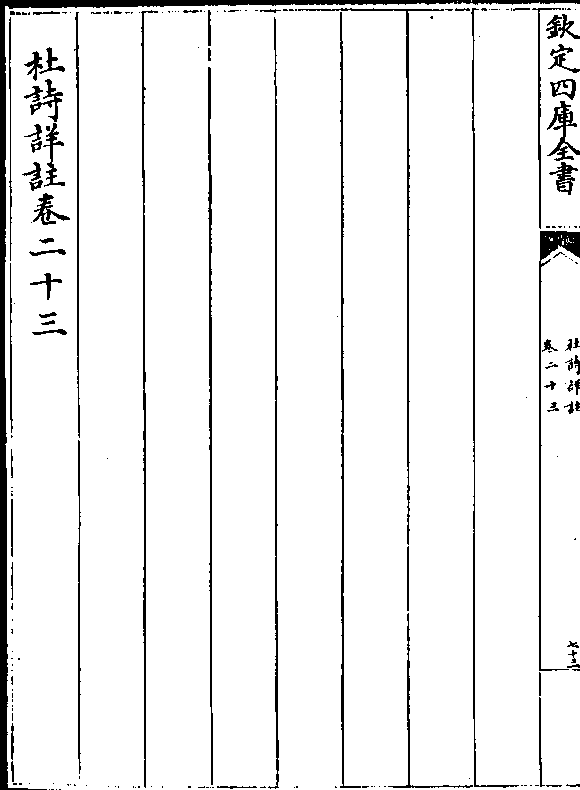 欽定四庫全書
杜詩詳註
卷二十三
七十三
杜詩詳註卷二十三